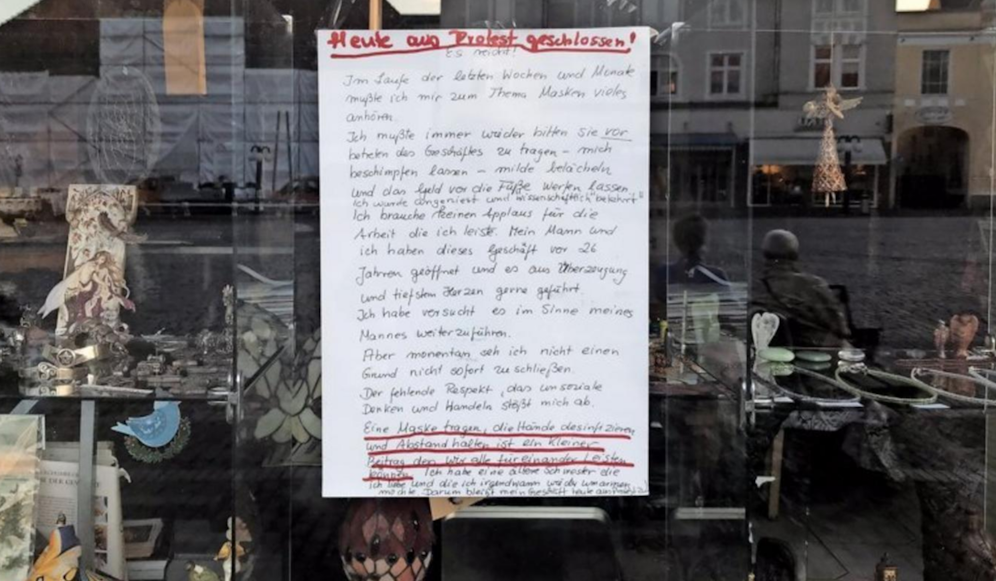 Heute aus Protest geschlossen!
Es reicht!
Im Laufe der letzten Wochen und Monate
mußte ich mir zum Thema Masken vieles
anhören.
Ich mußte immer wieder bitten sie vor
betreten des Geschäftes zu tragen - mich
beschimpfen lassen - milde belächeln
und das Geld vor die Füße werfen lassen.
Ich wurde angeniest und "wissenschaftlich" belehrt.
Ich brauche keinen Applaus für die
Arbeit die ich leiste. Mein Mann und
ich haben dieses Geschäft vor 26
Jahren geöffnet und es aus Überzeugung
und tiefstem Herzen gerne geführt.
Ich habe versucht es im Sinne meines
Mannes weiterzuführen.
Aber momentan seh ich nicht einen
Grund nicht sofort zu schließen.
Der fehlende Respekt, das unsoziale
Denken und Handeln stößt mich ab.
Eine Maske tragen, die Hände desinfizieren
und Abstand halten ist ein kleiner
Beitrag den wir alle füreinander leisten
können. Ich habe eine ältere Schwester die
ich liebe und die ich irgendwann wieder umarmen
möchte. Darum bleibt mein Geschäft heute